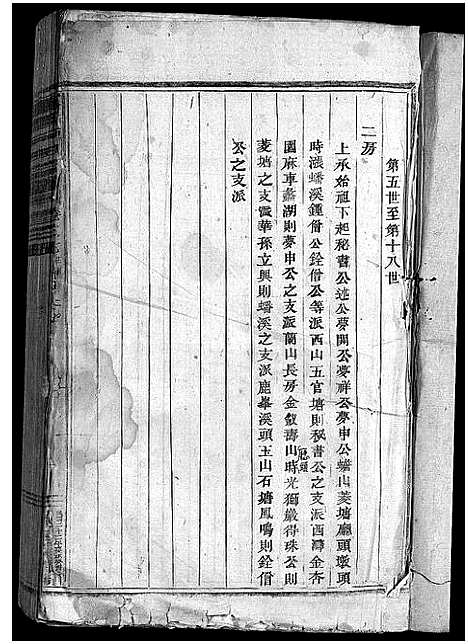 第五世至第十八世
二房
上承始祖下起秘書公述公夢開公夢祥公夢申公蟠山菱塘廳頭墩頭
時漲蟠溪鍾僧公銓僧公等派西山五官塘則秘書公之支派西灣金杏
園麻車蠡湖則夢申公之支派蘭山長房金叙壽山時光獅巖得珠公則
菱塘之支霞華孫立興則蟠溪之支派鹿峯溪頭王山石塘鳳鳴則銓僧
公之支派